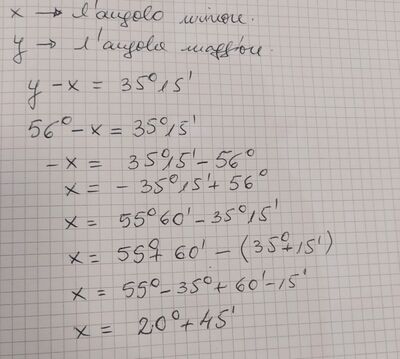 x → l'angolo minore.
y → l'angolo maggiore.
y - x = 35° 15'
56° - x = 35° 15'
- x = 35° 15' - 56°
x = - 35° 15' + 56°
x = 55° 60' - 35° 15'
x = 55° + 60' - (35° + 15')
x = 55° - 35° + 60' - 15'
x = 20° + 45'